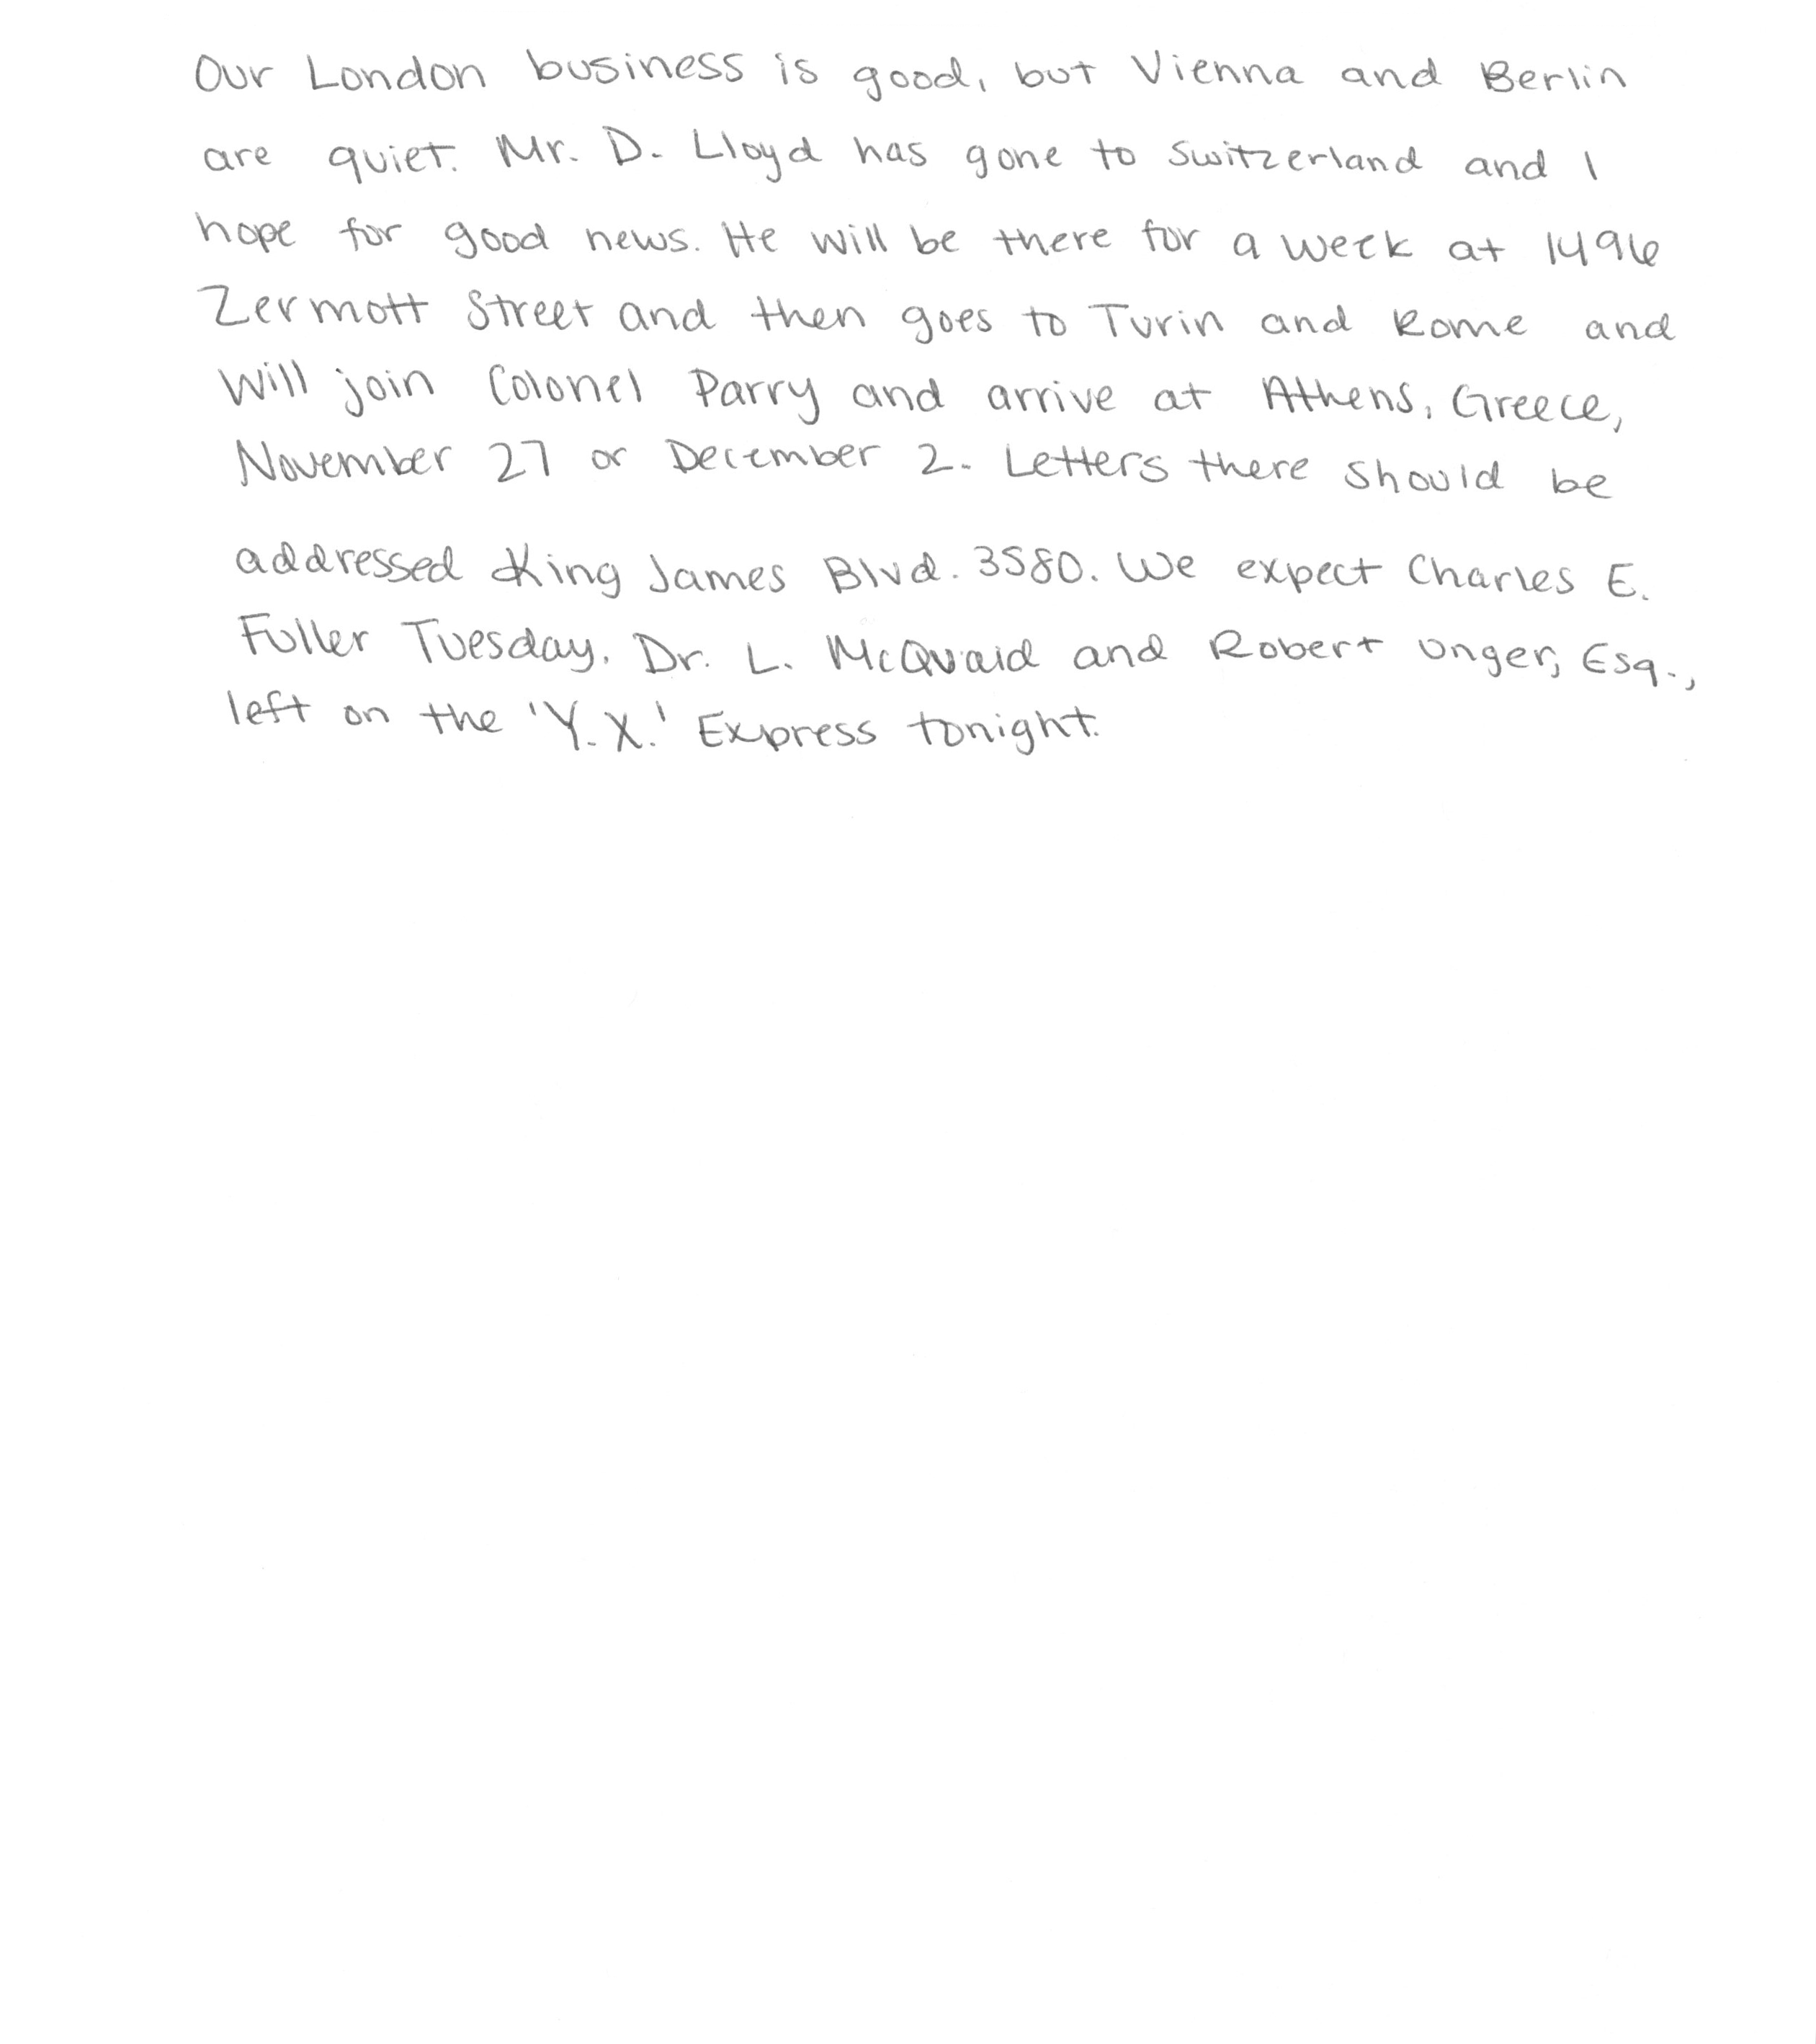 Our London business is good, but Vienna and Berlin
are quiet. Mr. D. Lloyd has gone to Switzerland and I
hope for good news. He will be there for a week at 1496
Zermott Street and then goes to Turin and Rome and
will join Colonel Parry and arrive at Athens, Greece,
November 27 or December 2. Letters there should be
addressed King James Blvd. 3580. We expect Charles E.
Fuller Tuesday. Dr. L. McQuaid and Robert Unger, Esq.,
left on the 'Y.X.' Express tonight.